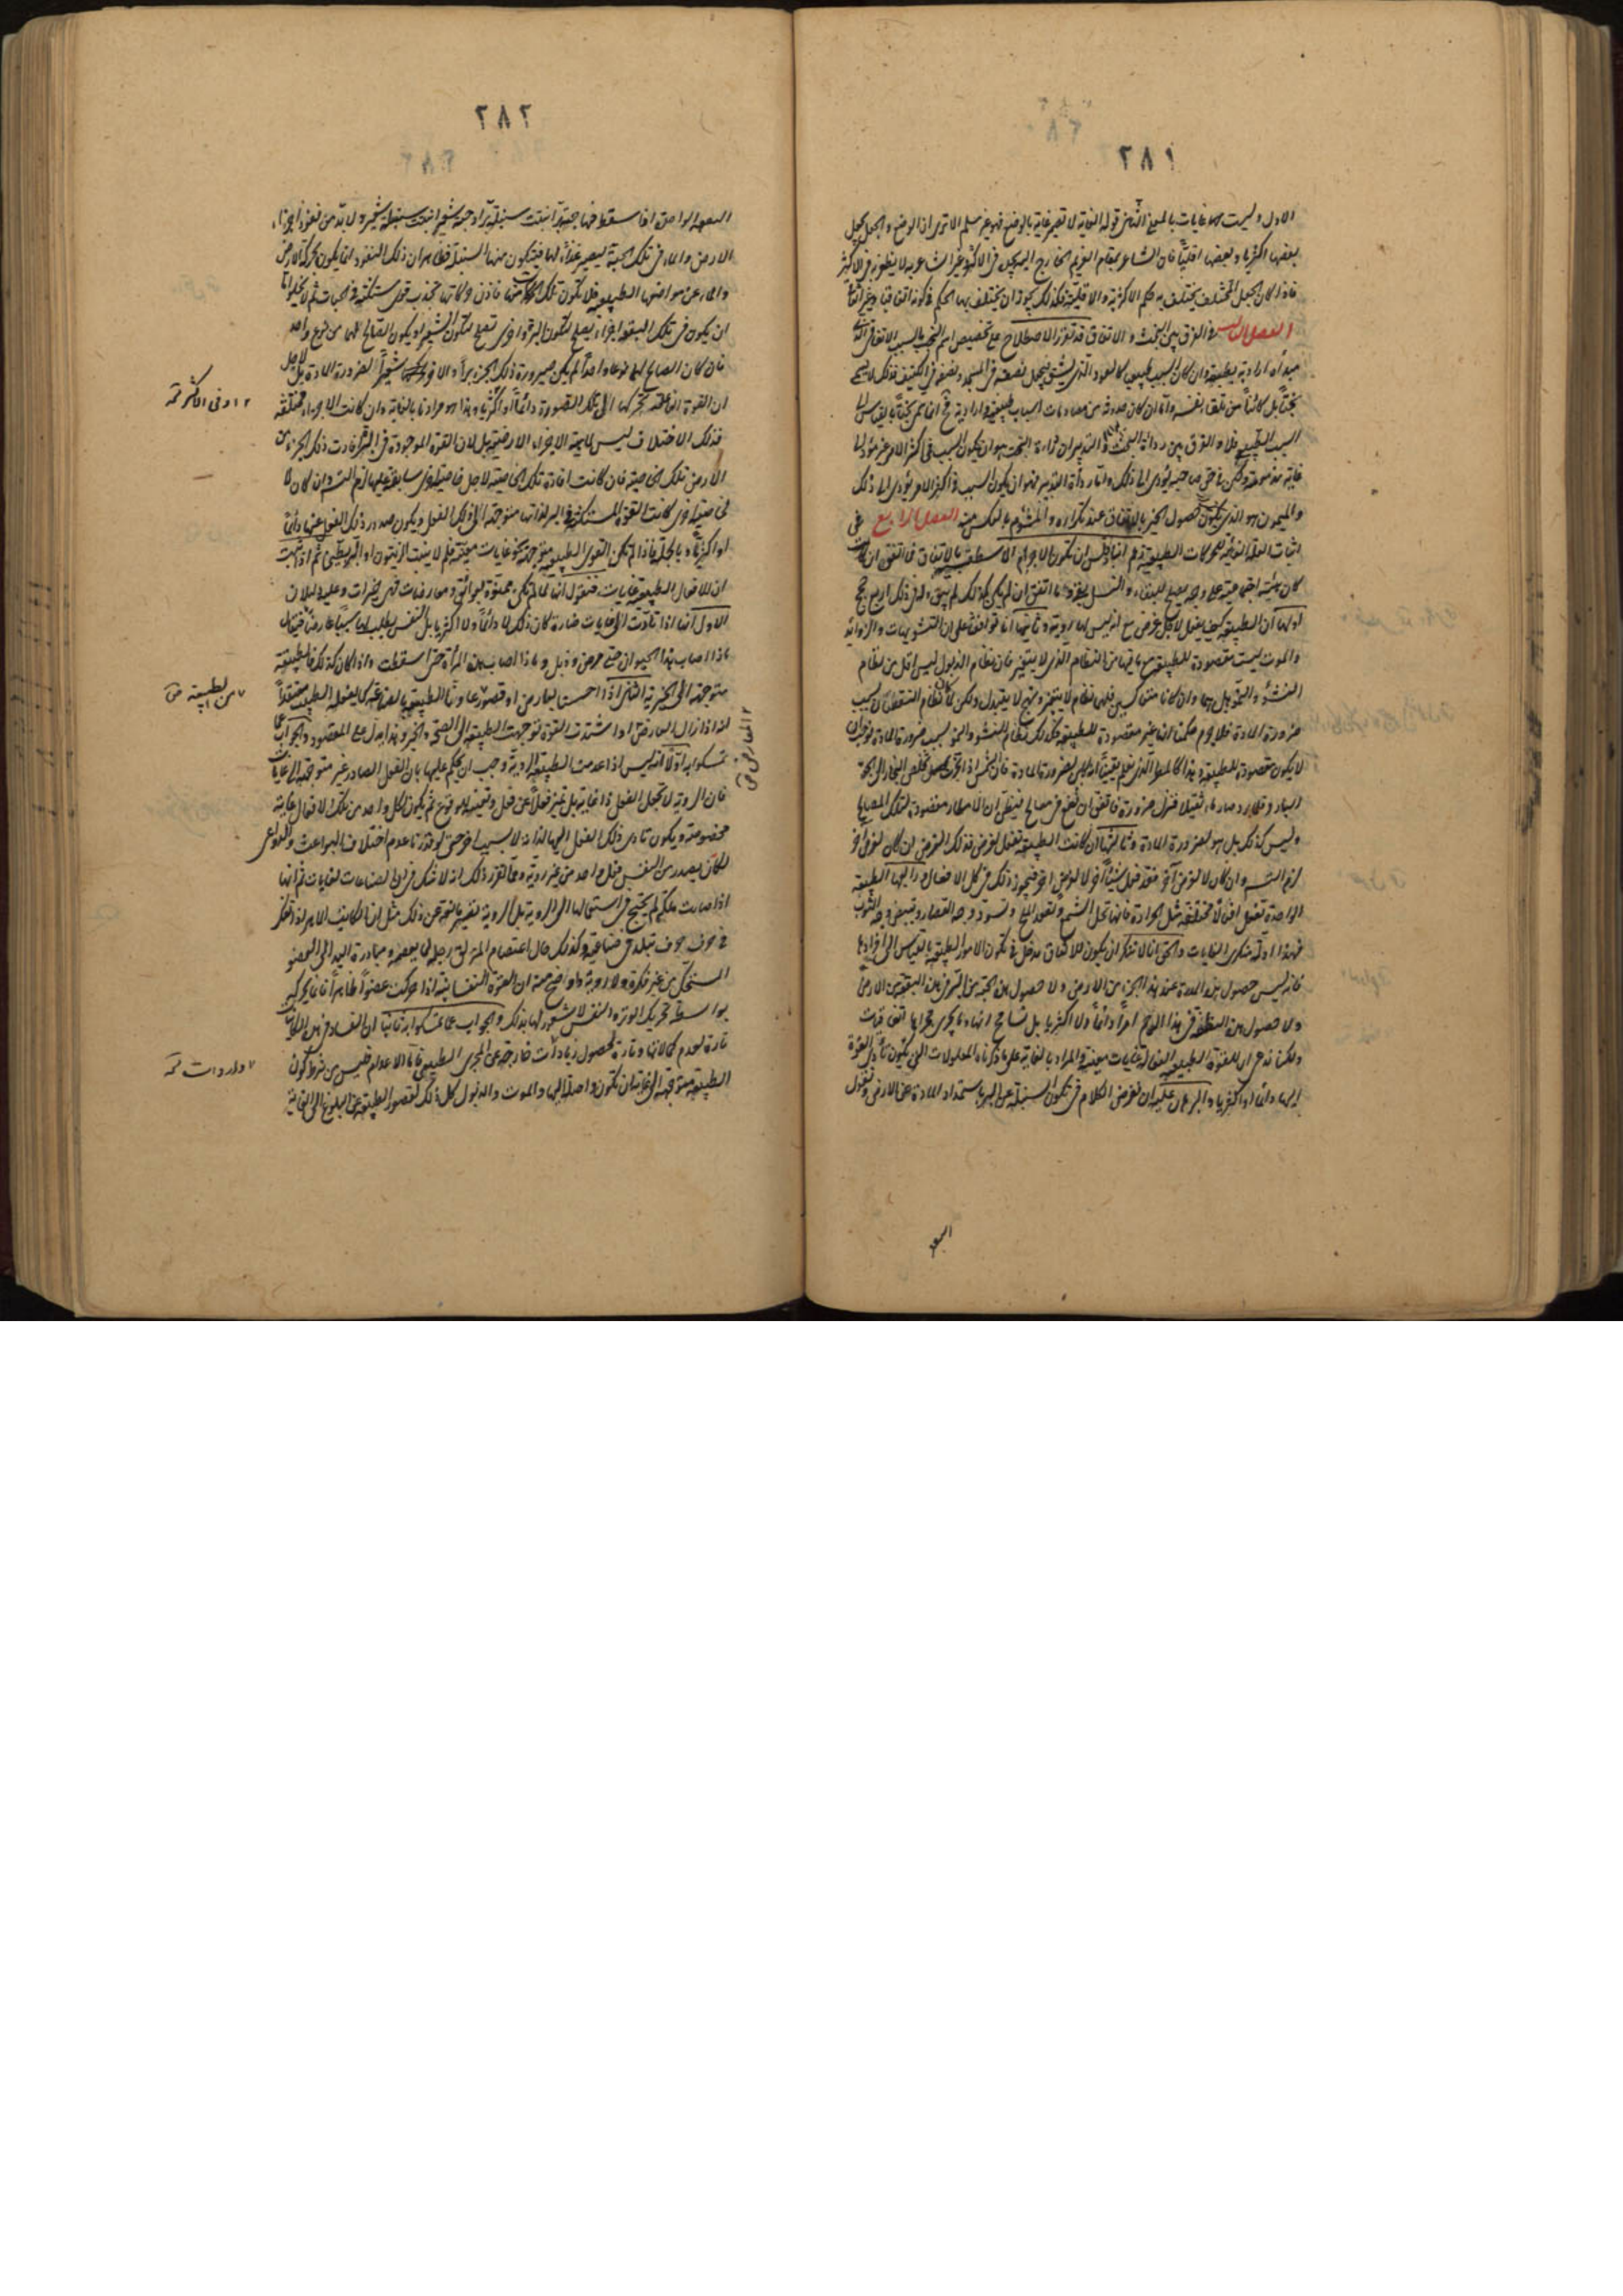 ٢٨١
الاول وليست هى غايات بالمعنى الثانى قوله الغاية لا تصير غاية بالوضع فهو غير مسلم الا ترى ان الوضع والجعل يجعل
بعضها اكثريا وبعضها اقليا فان الشاعر بمقام الغريم الخارج اليه يجعل فى الاكثر وغير الشاعر به لا يظفر به فى الاكثر
فاذا كان الجعل المختلف يختلف به حكم الاكثرية والاقلية فكذلك يجوز ان يختلف بها الحكم فى كونه اتفاقيا وغير اتفاقى
الفصل الثالث فى الفرق بين البخت والاتفاق قد تقرر الاصطلاح على تخصيص اسم البخت بالسبب الاتفاقى الذى
مبدأه ارادية طبيعية وان كان السبب طبيعى كالعود الذى يشق فيجعل نصفه فى المسجد ونصفه فى الكنيف فذلك لا يسمى
بختا بل كائنا من تلقاء نفسه واما ان كان حدوثه من مصادمات اسباب طبيعية وارادية فح انما يسمى بختا بالقياس الى
السبب الطبيعى فلا والفرق بين رداءة البخت وسوء التدبير ان رداءة البخت هو ان يكون السبب فى اكثر الامر غير مؤد الى
غاية مذمومة ولكن فى حق صاحبه يؤدى الى ذلك واما رداءة التدبير فهو ان يكون السبب فى اكثر الامر يؤدى الى ذلك
والميمون هو الذى يكون حصول الخير بالاتفاق عند تكراره والمشؤم بالعكس منه الفصل الرابع فى
اثبات العلة الغائية للحركات الطبيعية زعم انباذقلس ان تكون الاجرام الاسطقسية بالاتفاق فما اتفق ان كان
كان هيئته اجتماعية على وجه يصلح للبقاء والنسل بقى وما اتفق ان لم يكن كذلك لم يبق وله فى ذلك اربع حجج
اولها ان الطبيعة كيف يفعل لاجل غرض مع انه ليس لها روية وثانيها انا توافقنا على ان التشويهات والزوائد
والموت ليست مقصودة للطبيعة مع ما فيها من النظام الذى لا يتغير فان نظام الذبول ليس اقل من نظام
النشؤ والنمو بل هما وان كانا متعاكسين فلهما نظام لا يتغير ونهج لا يتبدل ولكن لما كان نظام النقصان لسبب
ضرورة المادة فلا جرم حكمنا انه غير مقصودة للطبيعة فكذلك نظام للنشو والنمو لسبب ضرورة المادة فوجب ان
لا يكون مقصودة للطبيعة وهذا كالمطر الذى نعلم يقينا انه كاين لضرورة المادة فان الشمس اذا بخرت فخلص البخار الى الجو
البارد وقد برد صار ماء ثقيلا فنزل ضرورة فاتفق ان يقع فى مصالح فيظن ان الامطار مقصودة لتلك المصالح
وليس كذلك بل هو لضرورة المادة وثالثها ان كانت الطبيعة تفعل لغرض فذلك الغرض ان كان لغرض آخر
لزم التسلسل وان كان لا لغرض آخر فقد فعل شيئا آخر لا لغرض آخر فيجوز ذلك فى كل الافعال ورابعها الطبيعة
الواحدة تفعل افعالا مختلفة مثل الحرارة فانها تحل الشمع وتعقد الملح وتسود وجه القصار وتبيض وجه الثوب
فهذه ادلة منكرى الغايات والحق انا لا ننكر ان يكون للاتفاق مدخل فى تكون الامور الطبيعية بالقياس الى افرادها
فانه ليس حصول هذه المدرة عند هذا الجزء من الارض ولا حصول هذه الحبة من البر فى هذه البقعة من الارض
ولا حصول هذه النطفة فى هذا الرحم امرا دائما ولا اكثريا بل نسامح انها وما يجرى مجراها اتفاقيات
ولكنا ندعى ان للقوة الطبيعية الفعالة غايات معينة والمراد بالغاية على ما ذكرناه المعلولات التى يكون تأدى القوة
اليها دائما او اكثريا والبرهان عليه ان نفرض الكلام فى تكون السنبلة عن البر باستمداد المادة عن الارض ونقول
البقعة
٢٨٢
البقعة الواحدة اذا سقط فيها حبة بر انبتت سنبلة بر او حبة شعير انبتت سنبلة شعير ولا بد من نفوذ اجزاء
الارض والماء فى تلك الحبة ليصير غذاء لها فيتكون منها السنبلة فظاهر ان ذلك النفوذ انما يكون بحركة الارض
والماء عن مواضعهما الطبيعية فلا تكون تلك الحركة منهما فاذن حركاتها بجذب قوى مستكنة فى الحبات ثم لا يخلوا اما
ان يكون فى تلك البقعة اجزاء يصلح لتكون البر واخرى تصلح لتكون الشعير او يكون الصالح لهما من نوع واحد
فان كان الصالح لهما نوعا واحدا لم يكن صيرورة ذلك الجزء برا والاخر شعيرا لضرورة المادة بل لاجل
ان القوة الفاعلة تحركها الى تلك الصورة دائما او اكثريا وهذا هو مرادنا بالغاية وان كانت الاجزاء مختلفة
فذلك الاختلاف ليس لماهية الاجزاء الارضية بل لان القوة الموجودة فى البر افادت ذلك الجزء من
الارض تلك الخاصية فان كانت افادة تلك الخاصية لاجل خاصية اخرى سابقة عليها لزم التسلسل وان كان لا
لخاصية اخرى كانت القوة المستكنة فى البر لذاتها متوجهة الى ذلك الفعل ويكون صدور ذلك الفعل عنها دائما
او اكثريا وبالجملة فاذا لم تكن القوى الطبيعية متوجهة نحو غايات معينة فلم لا ينبت الزيتون او البر بطيخا ثم اذا ثبت
ان للافعال الطبيعية غايات فنقول انها ما لم يكن ممنوة بعوائق ومعارضات فهى خيرات وعليه دليلان
الاول انها اذا تأدت الى غايات ضارة كان ذلك لا دائما ولا اكثريا بل النفس يطلب لها سببا عارضا فيقال
ماذا اصاب هذا الحيوان حتى مرض وذبل وماذا اصاب هذه المرأة حتى اسقطت واذا كان كذلك فالطبيعة
متوجهة الى الخيرية الثانى اذا احست بعارض او قصور عاونا الطبيعة بالصناعة كما يفعله الطبيب معتقدا
انه اذا زال العارض او اشتدت القوة توجهت الطبيعة الى الصحة والخير وهذا يدل على المقصود والجواب عما
تمسكوا به اولا انه ليس اذا عدمت الطبيعة الروية وجب ان يحكم عليها بان الفعل الصادر غير متوجه الى غاية
فان الروية لا تجعل الفعل ذا غاية بل تميز فعلا عن فعل وتعينه للوقوع ثم يكون لكل واحد من تلك الافعال غاية
مخصوصة ويكون تادى ذلك الفعل اليها لذاته لا بسبب آخر حتى لو قدرنا عدم اختلاف البواعث والدواعى
لكان يصدر من النفس فعل واحد من غير روية ومما تقرر ذلك انه لا شك فى ان الصناعات لغايات ثم انها
اذا صارت ملكة لم يحتج فى استعمالها الى الروية بل الروية تصير مانعة عن ذلك مثل ان الكاتب الماهر اذا تفكر
فى حرف حرف تبلد فى صناعته وكذلك حال اعتصام المزلق رجله بما يعصمه ومبادرة اليد الى العضو
المستحك من غير فكرة ولا روية واوضح منه ان القوة النفسانية اذا حركت عضوا ظاهرا فانما تحركه
بواسطة تحريك الوتر والنفس لا شعور لها بذلك والجواب عما تمسكوا به ثانيا ان الفساد فى هذه الكائنات
تارة لعدم كمالاتها وتارة لحصول زيادات خارجة عن المجرى الطبيعى فاما الاعدام فليس من شرط كون
الطبيعة متوجهة الى غاية ان تكون واصلة اليها والموت والذبول كل ذلك لقصور الطبيعة عن البلوغ الى الغاية